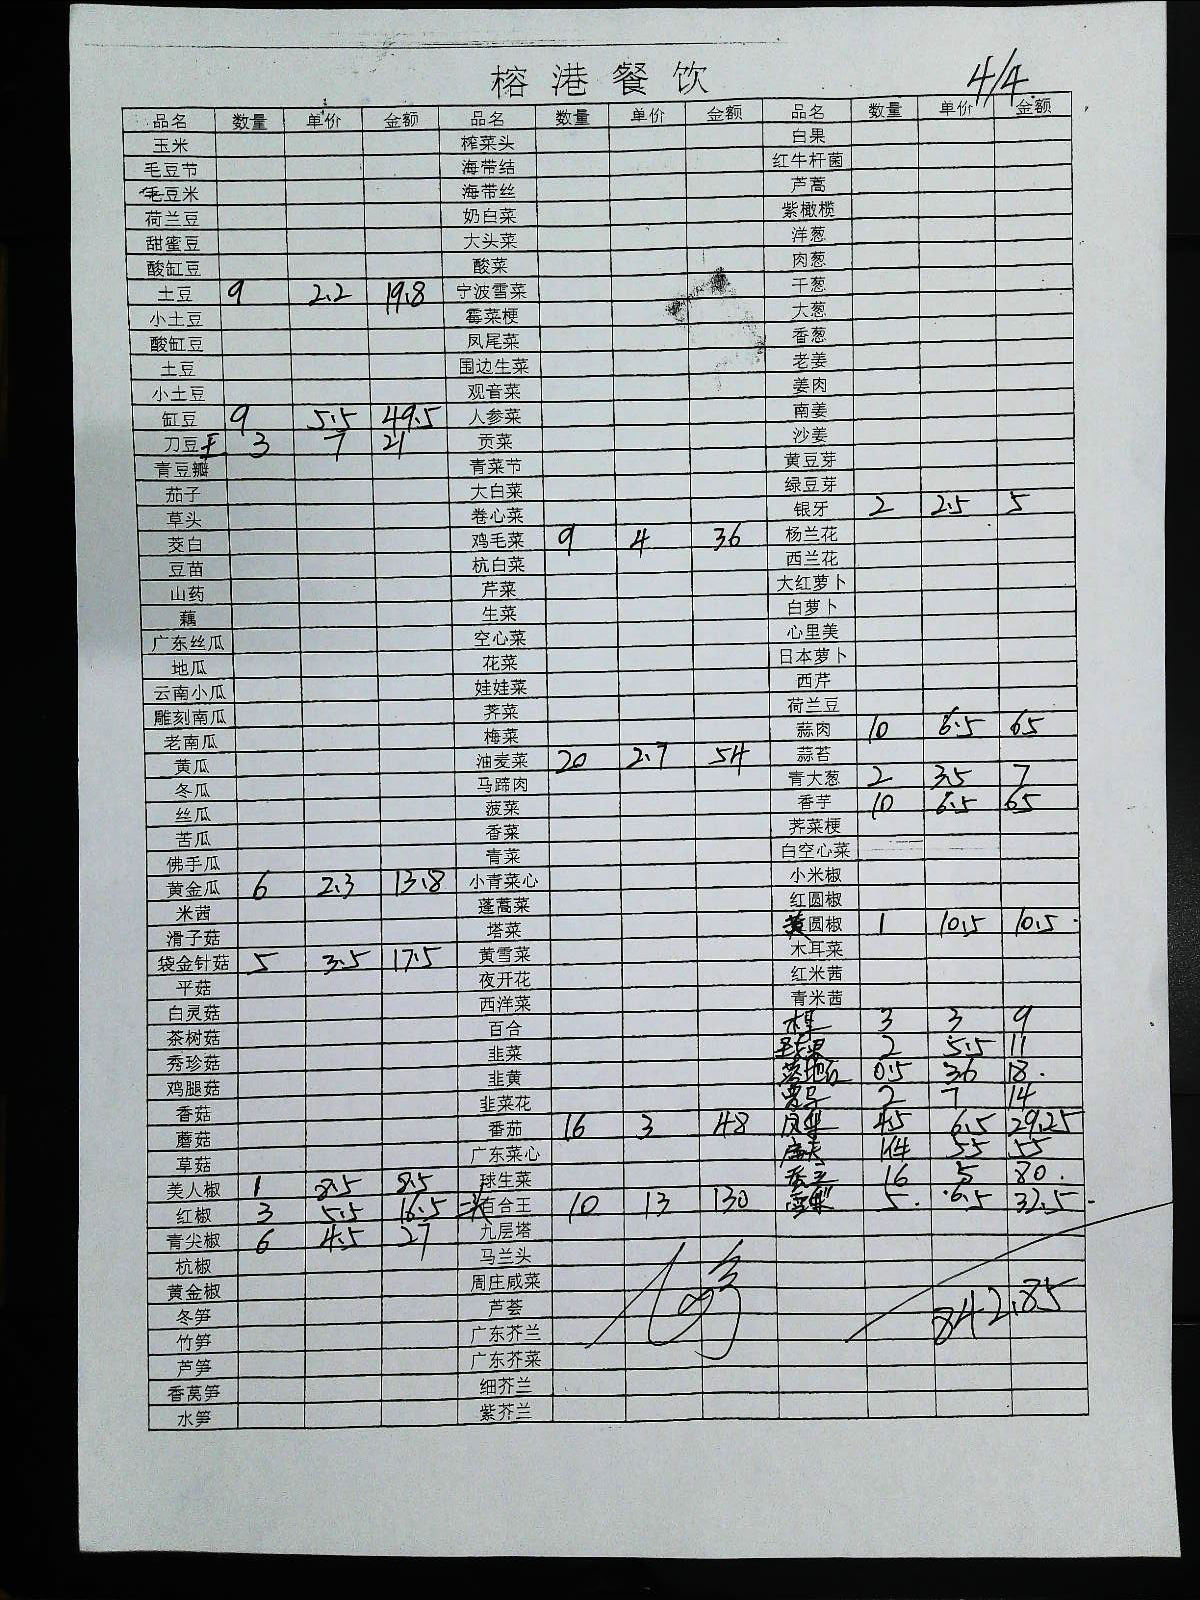 榕港餐饮
4/4
品名 数量 单价 金额 品名 数量 单价 金额 品名 数量 单价 金额
玉米 榨菜头 白果
毛豆节 海带结 红牛杆菌
毛豆米 海带丝 芦蒿
荷兰豆 奶白菜 紫橄榄
甜蜜豆 大头菜 洋葱
酸缸豆 酸菜 肉葱
土豆 9 2.2 19.8 宁波雪菜 干葱
小土豆 霉菜梗 大葱
酸缸豆 凤尾菜 香葱
土豆 围边生菜 老姜
小土豆 观音菜 姜肉
缸豆 9 5.5 49.5 人参菜 南姜
刀豆王 3 7 21 贡菜 沙姜
青豆瓣 青菜节 黄豆芽
茄子 大白菜 绿豆芽
草头 卷心菜 银牙 2 2.5 5
茭白 鸡毛菜 9 4 36 杨兰花
豆苗 杭白菜 西兰花
山药 芹菜 大红萝卜
藕 生菜 白萝卜
广东丝瓜 空心菜 心里美
地瓜 花菜 日本萝卜
云南小瓜 娃娃菜 西芹
雕刻南瓜 荠菜 荷兰豆
老南瓜 梅菜 蒜肉 10 6.5 65
黄瓜 油麦菜 20 2.7 54 蒜苔
冬瓜 马蹄肉 青大葱 2 3.5 7
丝瓜 菠菜 香芋 10 6.5 65
苦瓜 香菜 荠菜梗
佛手瓜 青菜 白空心菜
黄金瓜 6 2.3 13.8 小青菜心 小米椒
米茜 蓬蒿菜 红圆椒
滑子菇 塔菜 黄圆椒 1 10.5 10.5
袋金针菇 5 3.5 17.5 黄雪菜 木耳菜
平菇 夜开花 红米茜
白灵菇 西洋菜 青米茜
茶树菇 百合 3 3 9
秀珍菇 韭菜 2 5.5 11
鸡腿菇 韭黄 0.5 36 18
香菇 韭菜花 2 7 14
蘑菇 番茄 16 3 48 4.5 6.5 29.25
草菇 广东菜心 55 55
美人椒 1 8.5 8.5 球生菜 16 5 80
红椒 3 5.5 16.5 百合王 10 13 130 雪梨 5 6.5 32.5
青尖椒 6 4.5 27 九层塔
杭椒 马兰头
黄金椒 周庄咸菜
冬笋 芦荟 842.85
竹笋 广东芥兰
芦笋 广东芥菜
香莴笋 细芥兰
水笋 紫芥兰